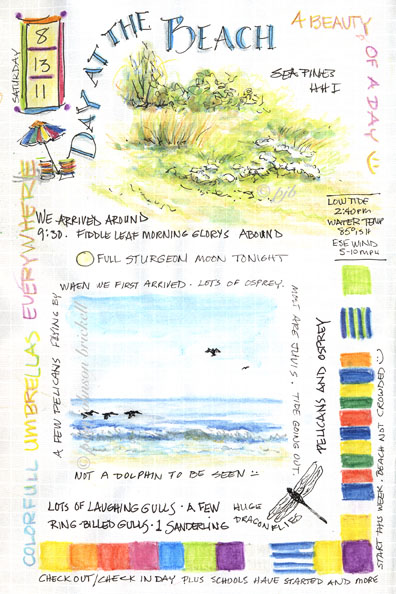 SATURDAY
8
13
11
DAY AT THE BEACH
A BEAUTY OF A DAY
SEA PINES
HHI
© pjb
WE ARRIVED AROUND
9:30. FIDDLE LEAF MORNING GLORYS ABOUND
FULL STURGEON MOON TONIGHT
LOW TIDE
2:40 PM
WATER TEMP
85°ISH
ESE WIND
5-10 MPH
COLORFULL UMBRELLAS EVERYWHERE
A FEW PELICANS FLYING BY
WHEN WE FIRST ARRIVED. LOTS OF OSPREY.
MOST ARE JUVIS. TIDE GOING OUT.
PELICANS AND OSPREY
NOT A DOLPHIN TO BE SEEN
LOTS OF LAUGHING GULLS • A FEW
RING-BILLED GULLS • 1 SANDERLING
HUGE
DRAGONFLIES
CHECK OUT/CHECK IN DAY PLUS SCHOOLS HAVE STARTED AND MORE
START THIS WEEK. BEACH NOT CROWDED